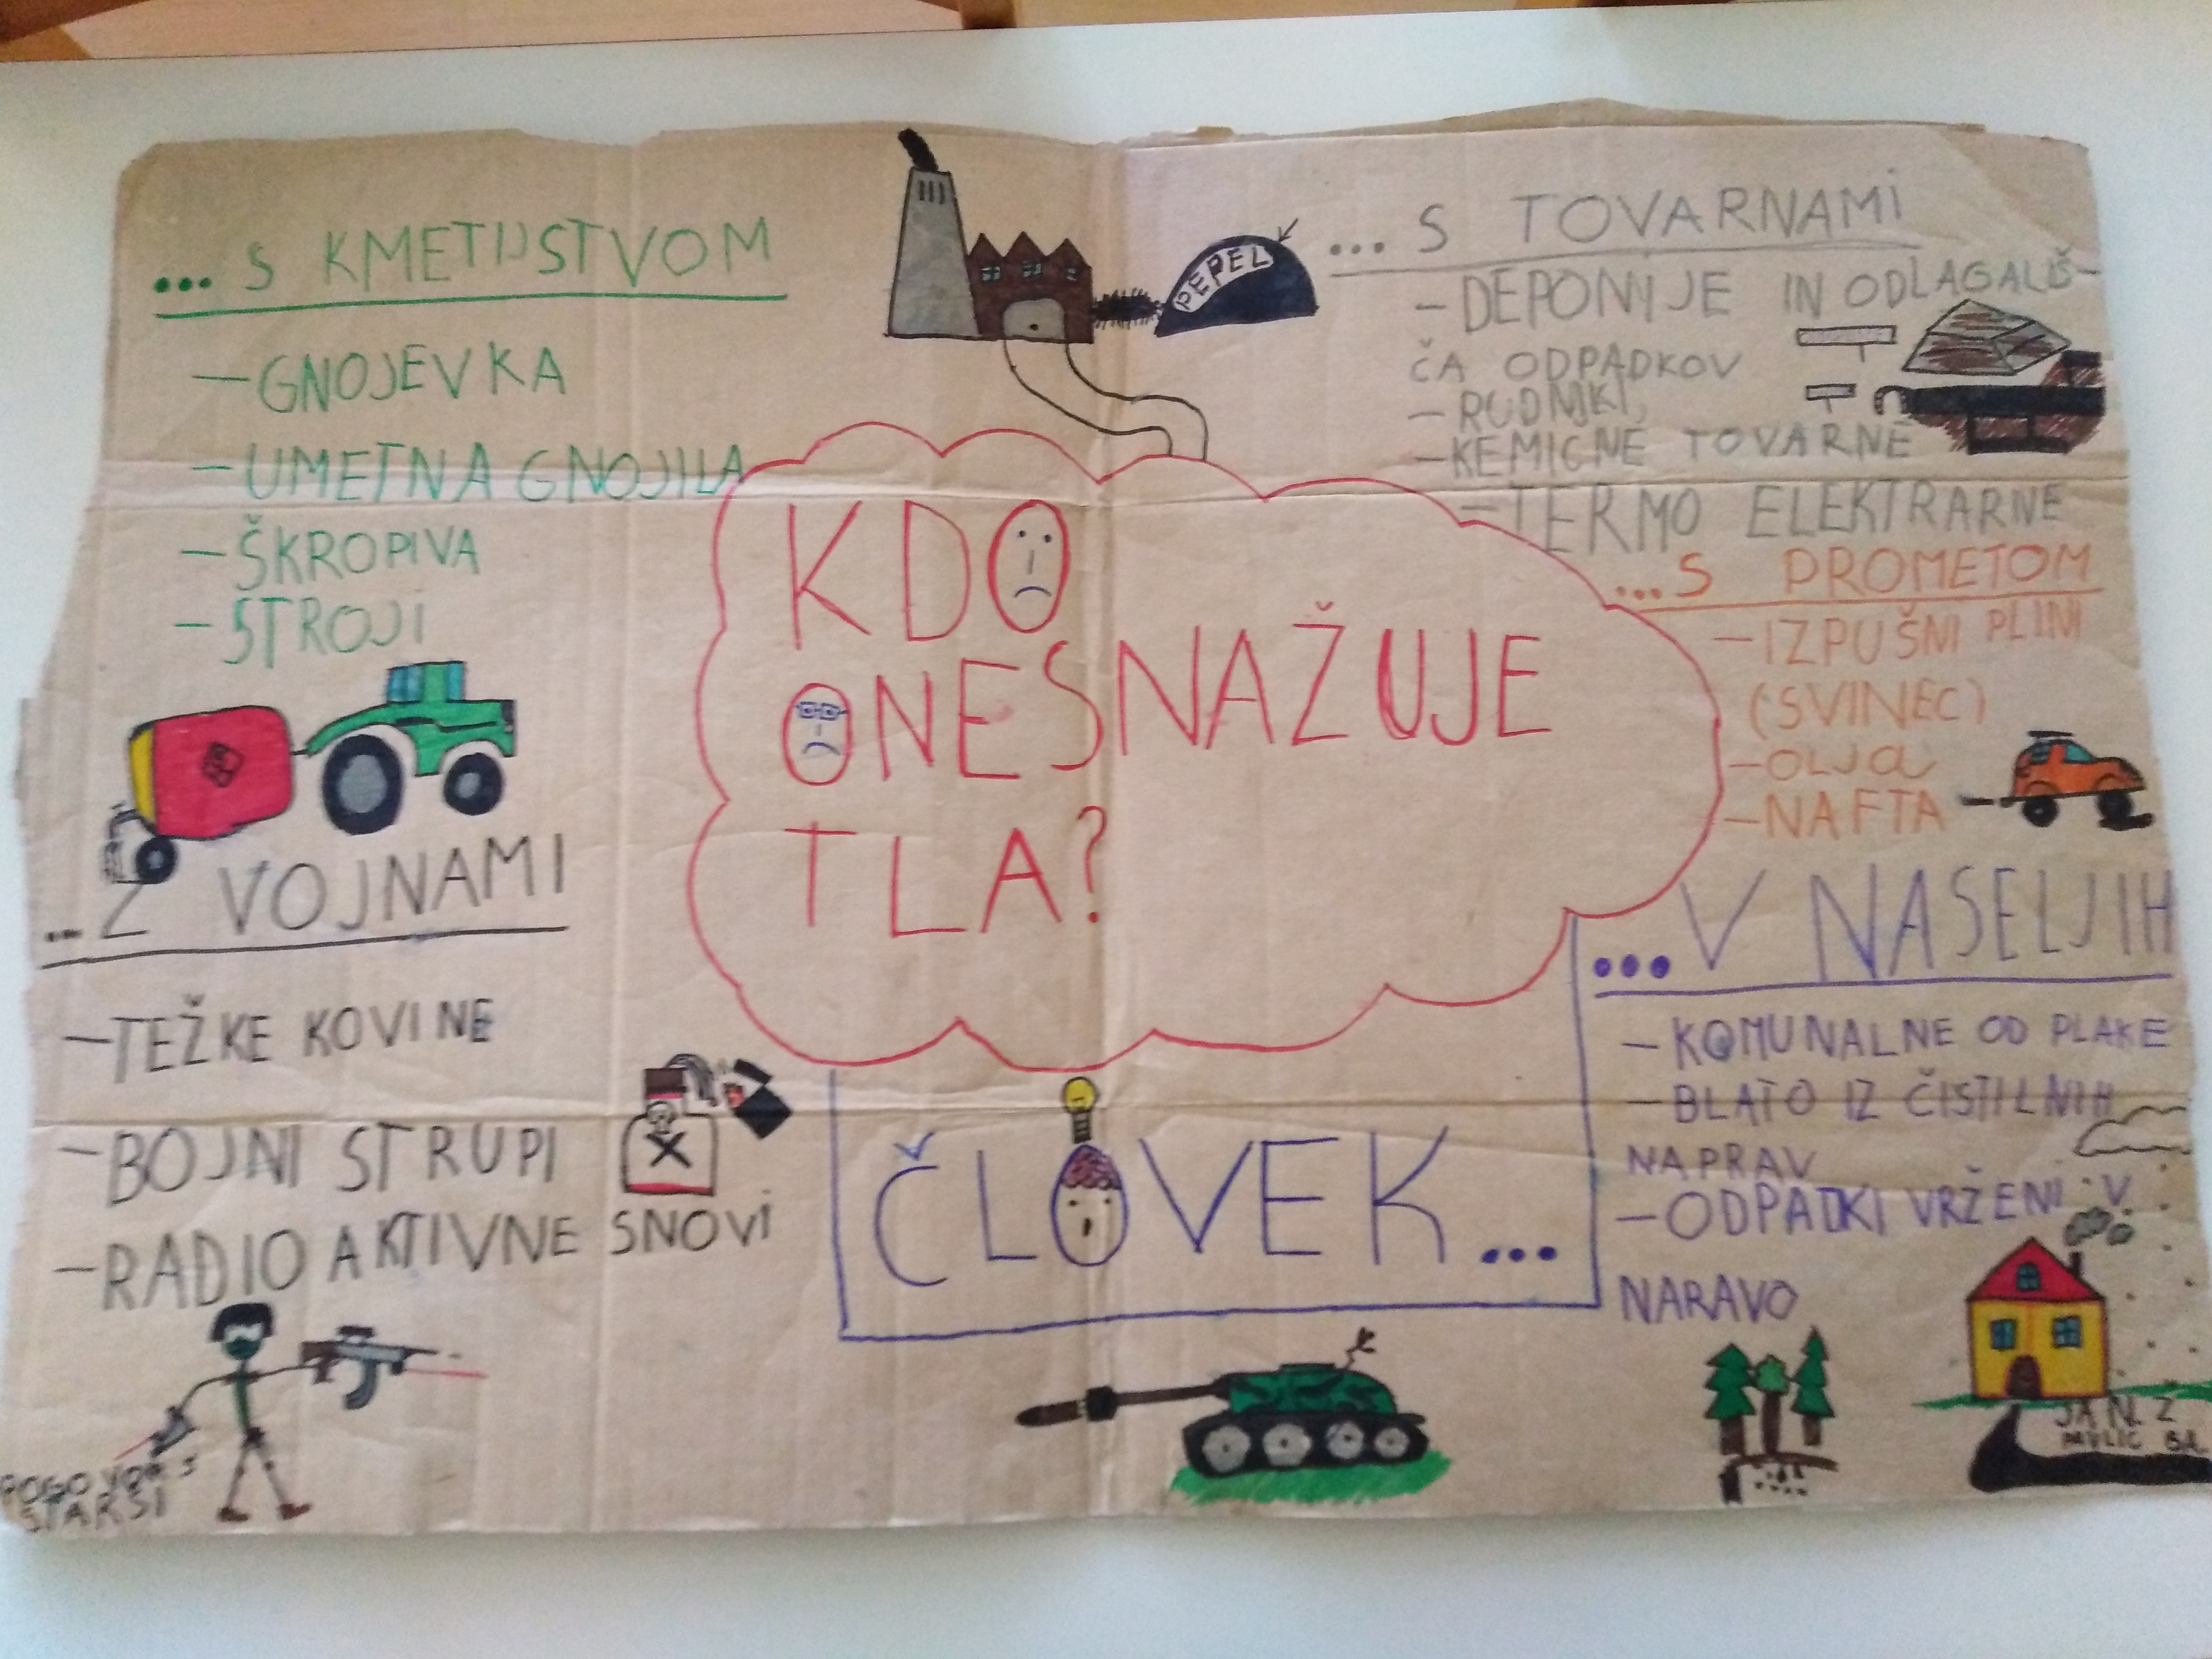 ... S KMETIJSTVOM
- GNOJEVKA
- UMETNA GNOJILA
- ŠKROPIVA
- STROJI
... Z VOJNAMI
- TEŽKE KOVINE
- BOJNI STRUPI
- RADIO AKTIVNE SNOVI
PEPEL
KDO
ONESNAŽUJE
TLA?
ČLOVEK...
... S TOVARNAMI
- DEPONIJE IN ODLAGALIŠ-
ČA ODPADKOV
- RUDNIKI,
- KEMIČNE TOVARNE
- TERMO ELEKTRARNE
... S PROMETOM
- IZPUŠNI PLINI
(SVINEC)
- OLJA
- NAFTA
... V NASELJIH
- KOMUNALNE OD PLAKE
- BLATO IZ ČISTILNIH
NAPRAV
- ODPATKI VRŽENI V
NARAVO
JAN Ž
PAVLIČ